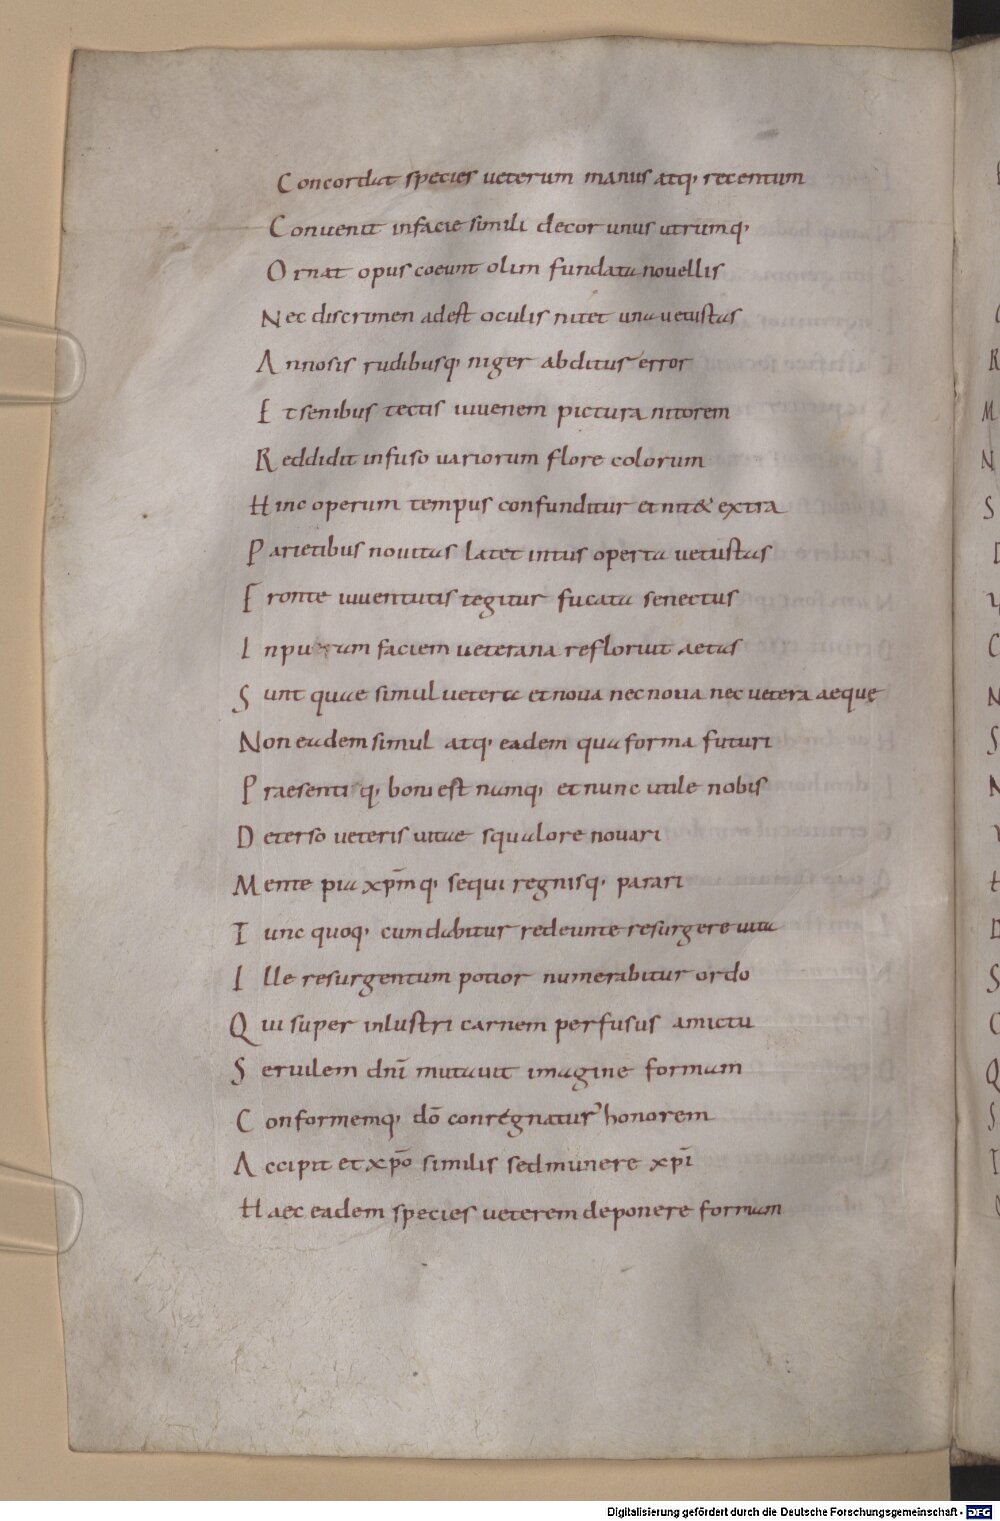 Concordat species ueterum manus atq; recentum
Conuenit infacie simili decor unus utrumq;
Ornat opus coeunt olim fundata nouellis
Nec discrimen adest oculis nitet una uetustas
Annosis rudibusq; niger abditus error
Et senibus tectis iuuenem pictura nitorem
Reddidit infuso uariorum flore colorum
Hinc operum tempus confunditur et nit& extra
Parietibus nouitas latet intus operta uetustas
Fronte iuuentutis tegitur fucata senectus
Inpuerum faciem ueterana refloruit aetas
Sunt quae simul uetera et noua nec noua nec uetera aeque
Non eadem simul atq; eadem qua forma futuri
Praesentisq; boni est namq; et nunc utile nobis
Deterso ueteris uitae squalore nouari
Mente pia xp̄mq; sequi regnisq; parari
Tunc quoq; cum dabitur redeunte resurgere uita
Ille resurgentum potior numerabitur ordo
Qui super inlustri carnem perfusus amictu
Seruilem dn̄i mutauit imagine formam
Conformemq; dō conregnatur' honorem
Accipit et xp̄o similis sed munere xp̄i
Haec eadem species ueterem deponere formam
Digitalisierung gefördert durch die Deutsche Forschungsgemeinschaft - DFG